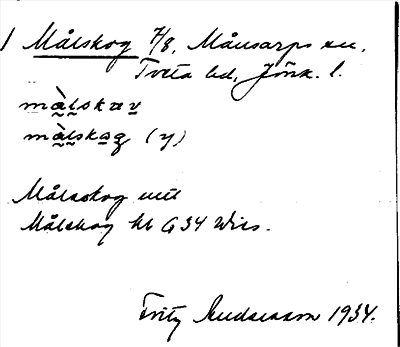 Målskog 7/8, Månsarps sn,
Tveta hd, Jönk. l.
màlskav
màlskag (y)
Målaskog
Målskog kb G 34 Wids.
Fritz Andersson 1934.